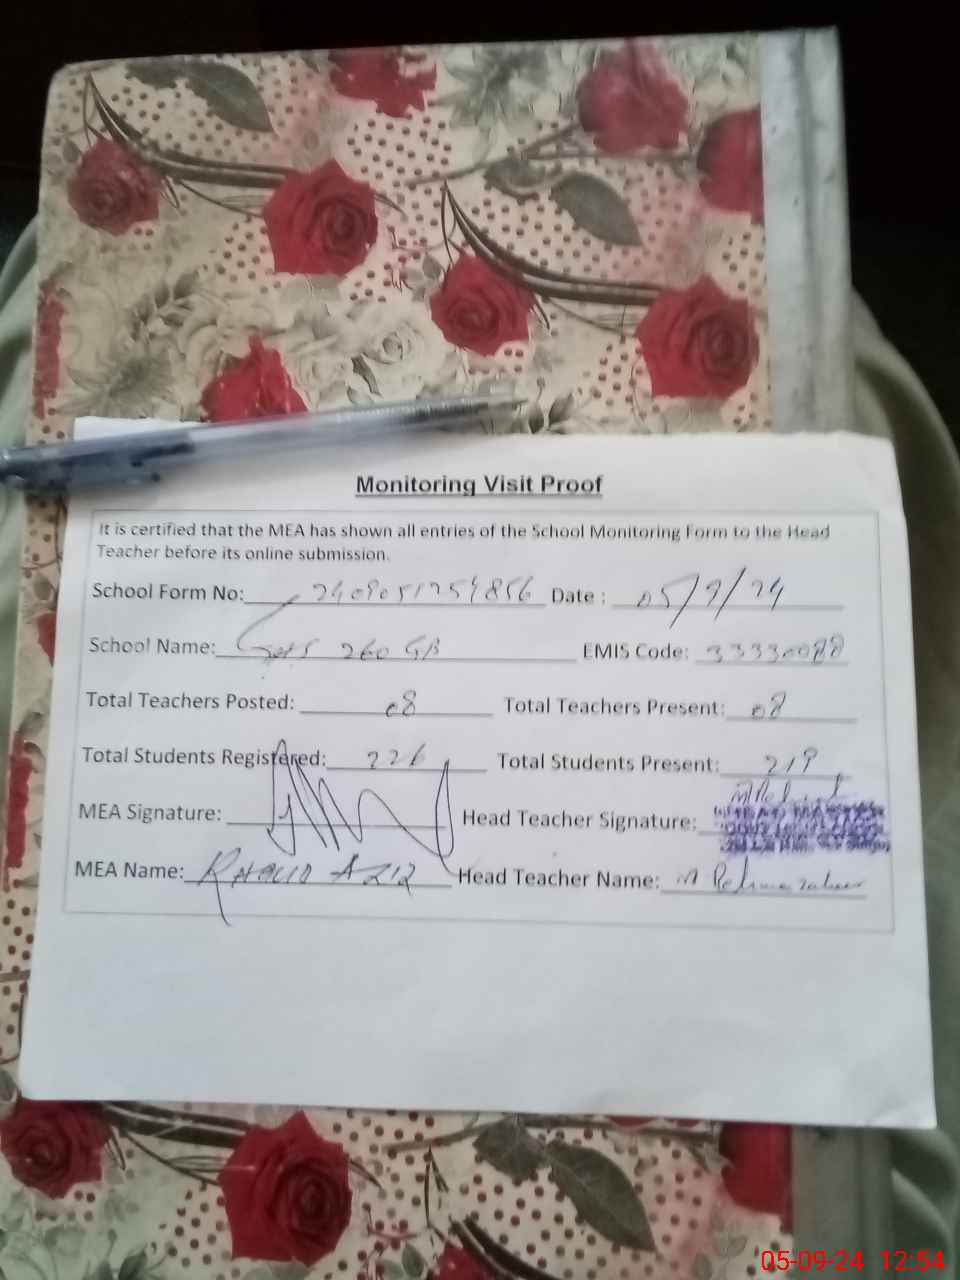 Monitoring Visit Proof
It is certified that the MEA has shown all entries of the School Monitoring Form to the Head
Teacher before its online submission.
School Form No: 2409051254856 Date : 05/9/24
School Name: 260 GB EMIS Code: 33330088
Total Teachers Posted: 08 Total Teachers Present: 08
Total Students Registered: 226 Total Students Present: 219
MEA Signature: Head Teacher Signature:
MEA Name: Khalid Aziz Head Teacher Name: M
05-09-24 12:54